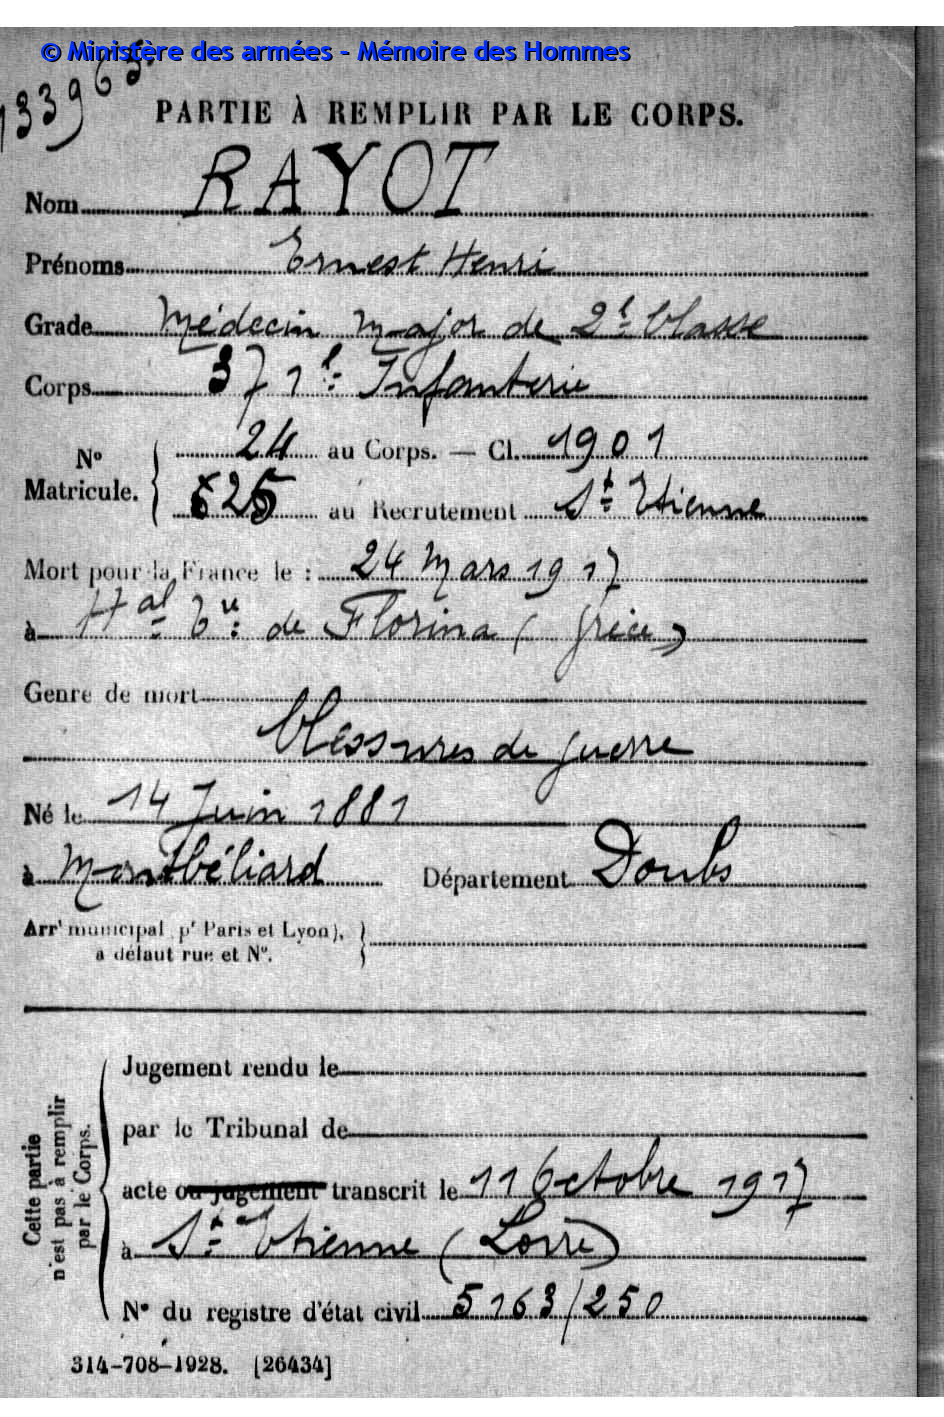 © Ministère des armées - Mémoire des Hommes
133965.
PARTIE À REMPLIR PAR LE CORPS.
Nom RAYOT
Prénoms Ernest Henri
Grade Médecin Major de 2e Classe
Corps 371e Infanterie
No Matricule. 24 au Corps. — Cl. 1901
625 au Recrutement St Etienne
Mort pour la France le : 24 Mars 1917
à Hal Tre de Florina (Grèce)
Genre de mort
blessures de guerre
Né le 14 Juin 1881
à Montbéliard Département Doubs
Arrt municipal (pr Paris et Lyon),
à défaut rue et No.
Cette partie
n'est pas à remplir
par le Corps.
Jugement rendu le
par le Tribunal de
acte ou jugement transcrit le 11 Octobre 1917
à St Etienne (Loire)
No du registre d'état civil 5163/250
314-708-1928. [26434]